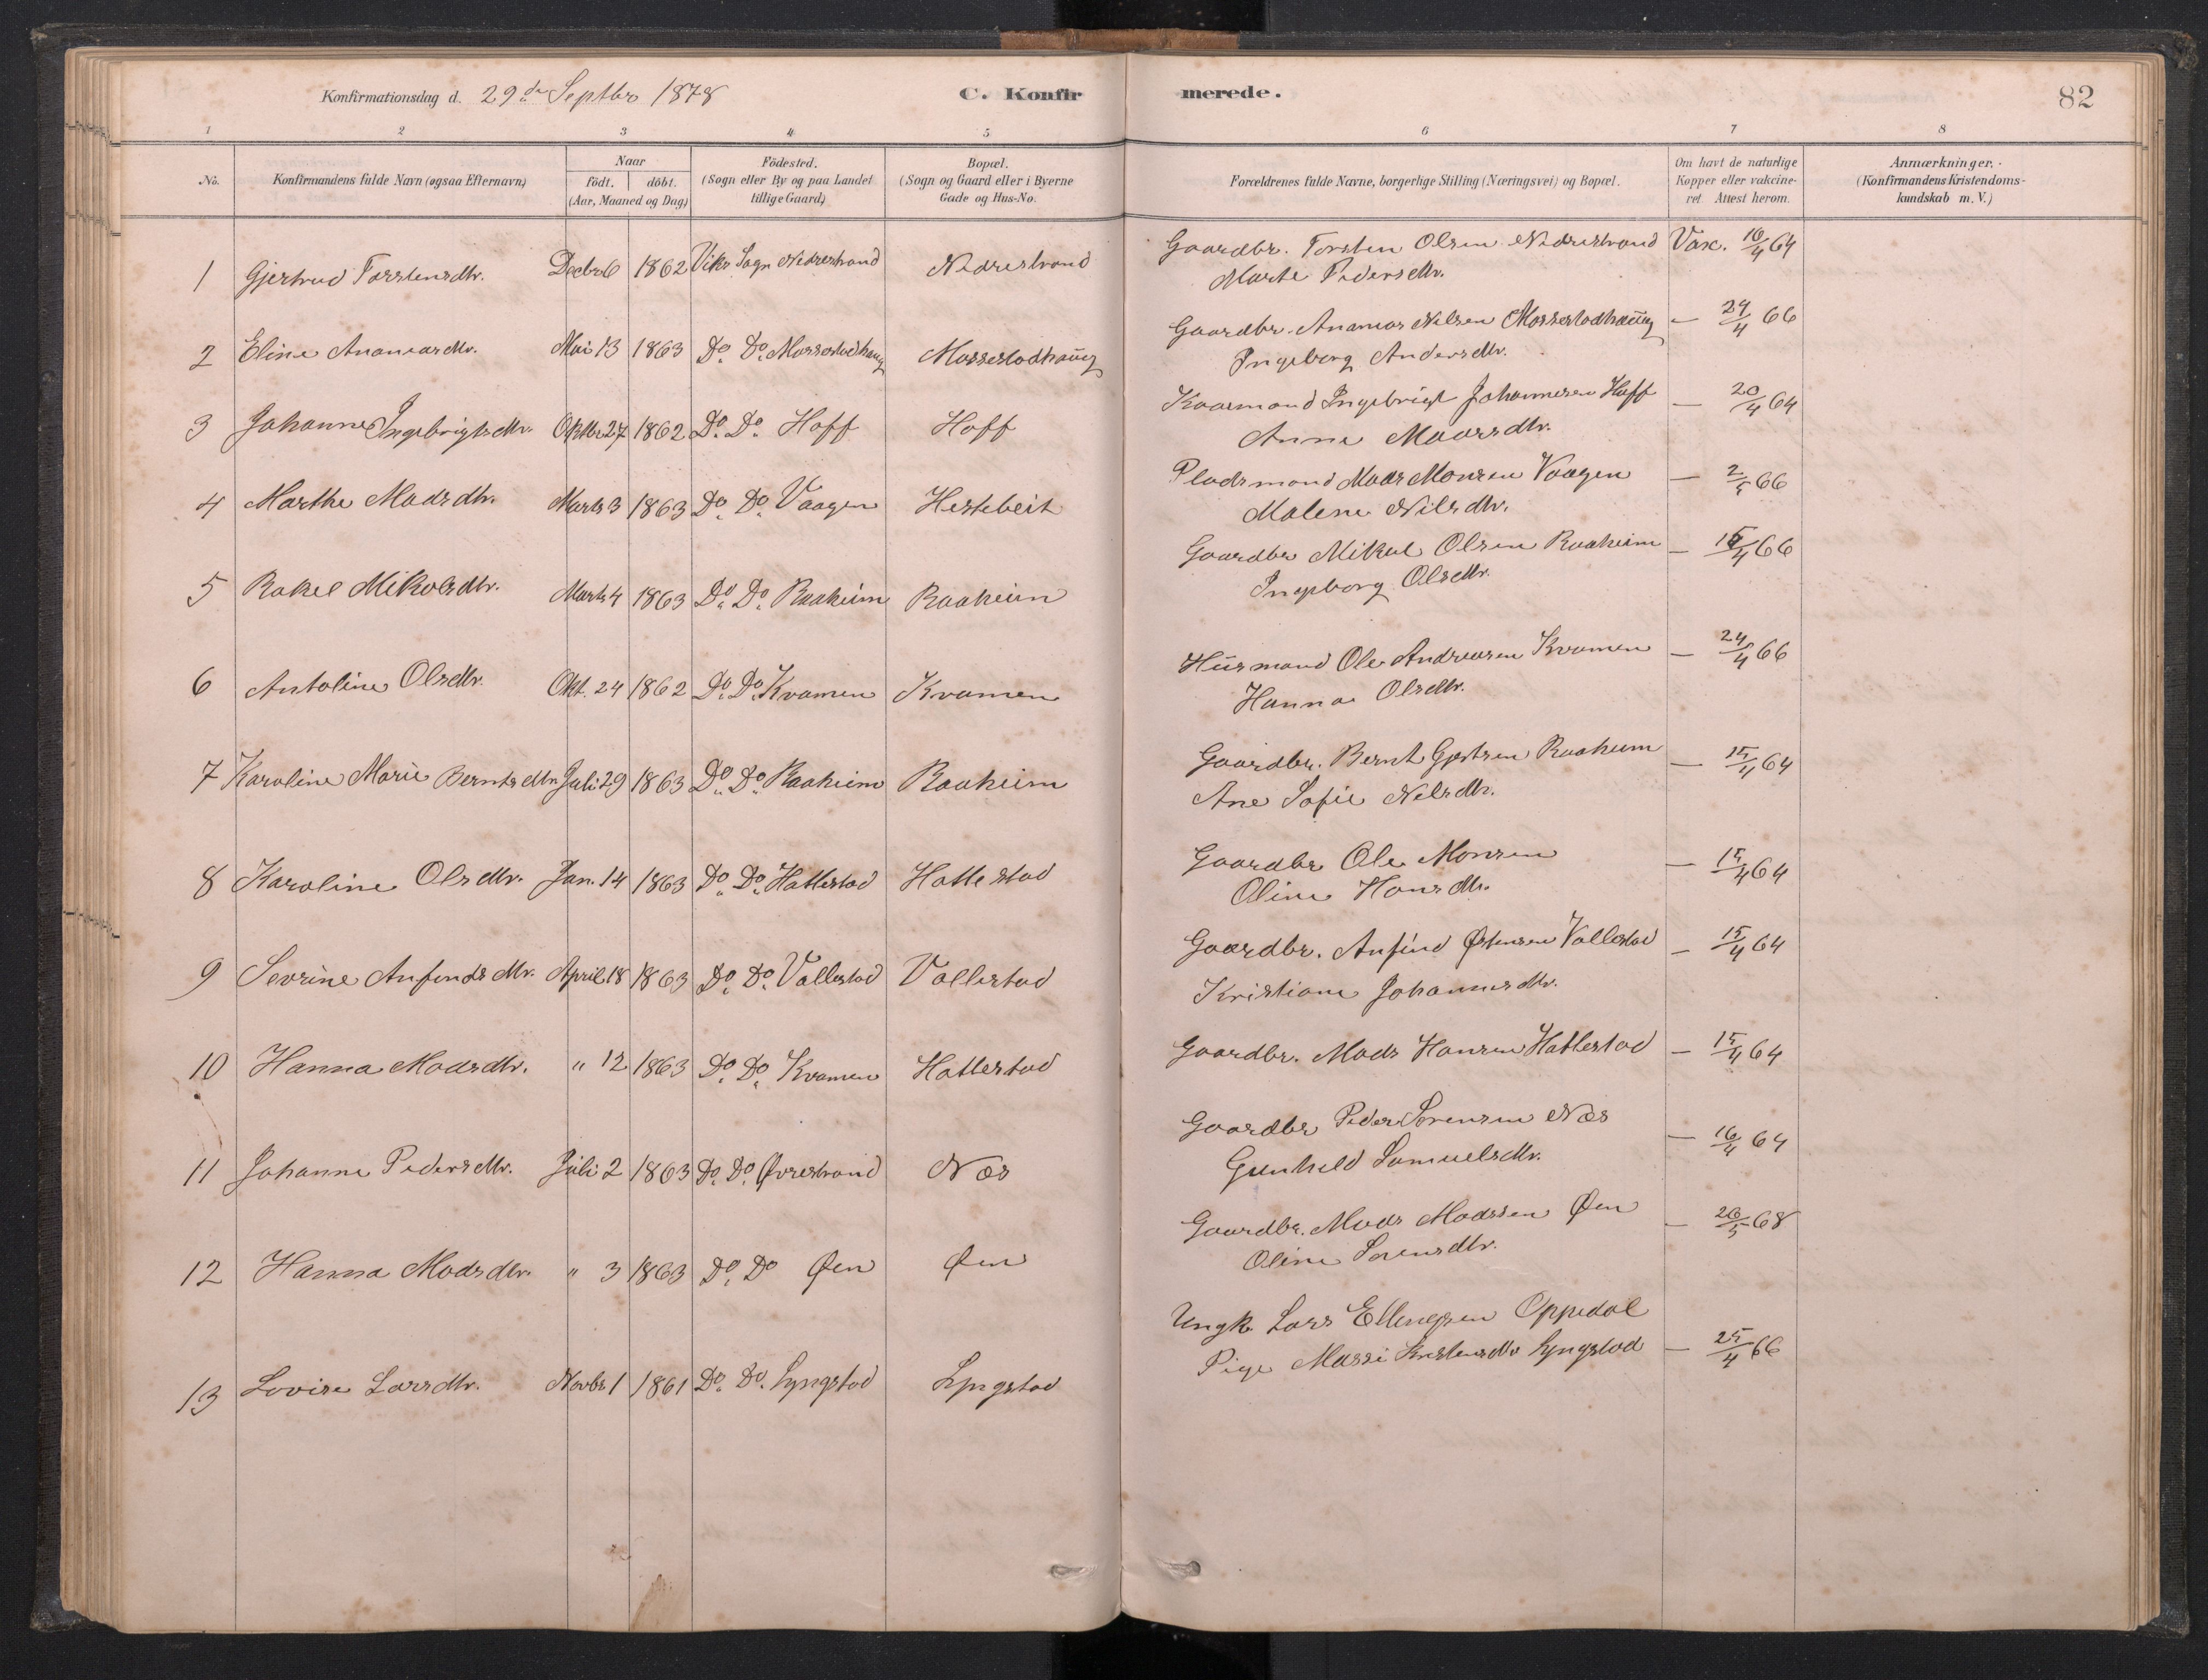 Konfirmationsdag d. 29de Septbr 1878
C. Konfirmerede.
82
1 2 3 4 5 6 7 8
No.
Konfirmandens fulde Navn (ogsaa Efternavn)
Naar
födt. döbt.
(Aar, Maaned og Dag)
Födested.
(Sogn eller By og paa Landet
tillige Gaard)
Bopæl.
(Sogn og Gaard eller i Byerne
Gade og Hus-No.
Forældrenes fulde Navne, borgerlige Stilling (Næringsvei) og Bopæl.
Om havt de naturlige
Kopper eller vakcine-
ret. Attest herom.
Anmærkninger.
(Konfirmandens Kristendoms-
kundskab m. V.)
1 Gjertrud Torstensdtr. Decbr 6 1862 Viks Sogn Nedrestrand Nedrestrand Gaardbr. Torsten Olsen Nedrestrand Vax. 16/4 64
Marte Pedersdtr.
2 Eline Ananiasdtr. Mai 13 1863 Do. Do. Massestadhaug Massestadhaug Gaardbr. Ananias Nilsen Massestadhaug — 24/4 66
Ingeborg Andersdtr.
3 Johanne Ingebrigtsdtr. Oktbr 27 1862 Do. Do. Hoff Hoff Kaarmand Ingebrigt Johannesen Hoff — 20/4 64
Anne Madsdtr.
4 Marthe Madsdtr. Marts 3 1863 Do. Do. Vaagen Hestebeit Pladsmand Mads Monsen Vaagen — 2/5 66
Malene Nilsdtr.
5 Rakel Mikalsdtr. Marts 4 1863 Do. Do. Raaheim Raaheim Gaardbr Mikal Olsen Raaheim — 15/4 66
Ingeborg Olsdtr.
6 Antoline Olsdtr. Okt. 24 1862 Do. Do. Kvamen Kvamen Husmand Ole Andreasen Kvamen — 24/4 66
Hanna Olsdtr.
7 Karoline Marie Berntsdtr Juli 29 1863 Do. Do. Raaheim Raaheim Gaardbr. Bernt Gjertsen Raaheim — 15/4 64
Ane Sofie Nelsdtr.
8 Karoline Olsdtr. Jan. 14 1863 Do. Do. Hatlestad Hatlestad Gaardbr Ole Monsen — 15/4 64
Oline Hansdtr.
9 Sevrine Anfindsdtr. April 18 1863 Do. Do. Vallestad Vallestad Gaardbr. Anfind Østensen Vallestad — 15/4 64
Kristiane Johannesdtr.
10 Hanna Madsdtr. " 12 1863 Do. Do. Kvamen Hatlestad Gaardbr. Mads Hansen Hatlestad — 15/4 64
11 Johanne Pedersdtr. Juli 2 1863 Do. Do. Øvrestrand Næs Gaardbr Peder Sørensen Næs — 16/4 64
Gunhild Samuelsdtr.
12 Hanna Madsdtr. " 3 1863 Do. Do Øen Øen Gaardbr. Mads Madssen Øen — 26/5 68
Oline Sørensdtr.
13 Lovise Larsdtr. Novbr 1 1861 Do. Do. Lyngstad Lyngstad Ungk. Lars Ellingsen Oppedal
Pige Massi Kristensdtr Lyngstad — 25/4 66